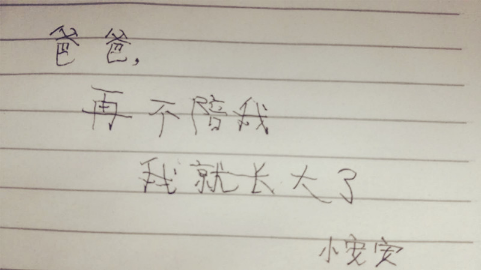 爸爸,
再不陪我
我就长大了
小安安